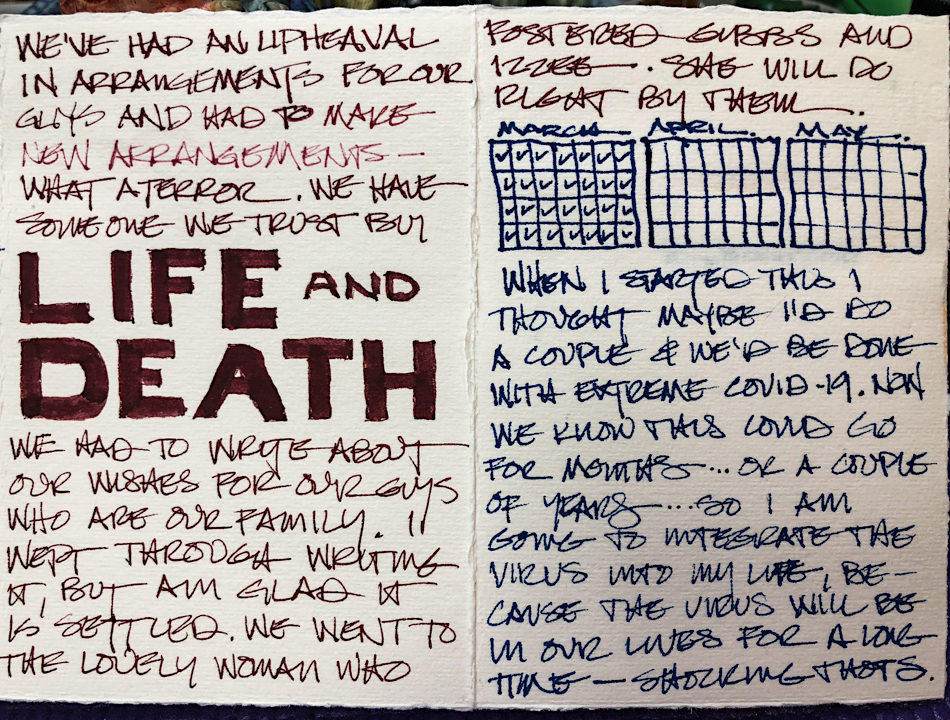 WE'VE HAD AN UPHEAVAL
IN ARRANGEMENTS FOR OUR
GUYS AND HAD TO MAKE
NEW ARRANGEMENTS —
WHAT A TERROR. WE HAVE
SOMEONE WE TRUST BUT
LIFE AND
DEATH
WE HAD TO WRITE ABOUT
OUR WISHES FOR OUR GUYS
WHO ARE OUR FAMILY. I
WEPT THROUGH WRITING
IT, BUT AM GLAD IT
IS SETTLED. WE WENT TO
THE LOVELY WOMAN WHO
FOSTERED GIBBS AND
IZZEE. SHE WILL DO
RIGHT BY THEM.
MARCH APRIL. MAY.
WHEN I STARTED THIS I
THOUGHT MAYBE I'D DO
A COUPLE & WE'D BE DONE
WITH EXTREME COVID-19. NOW
WE KNOW THIS COULD GO
FOR MONTHS... OR A COUPLE
OF YEARS...SO I AM
GOING TO INTEGRATE THE
VIRUS INTO MY LIFE, BE-
CAUSE THE VIRUS WILL BE
IN OUR LIVES FOR A LONG
TIME — SHOCKING THOTS.